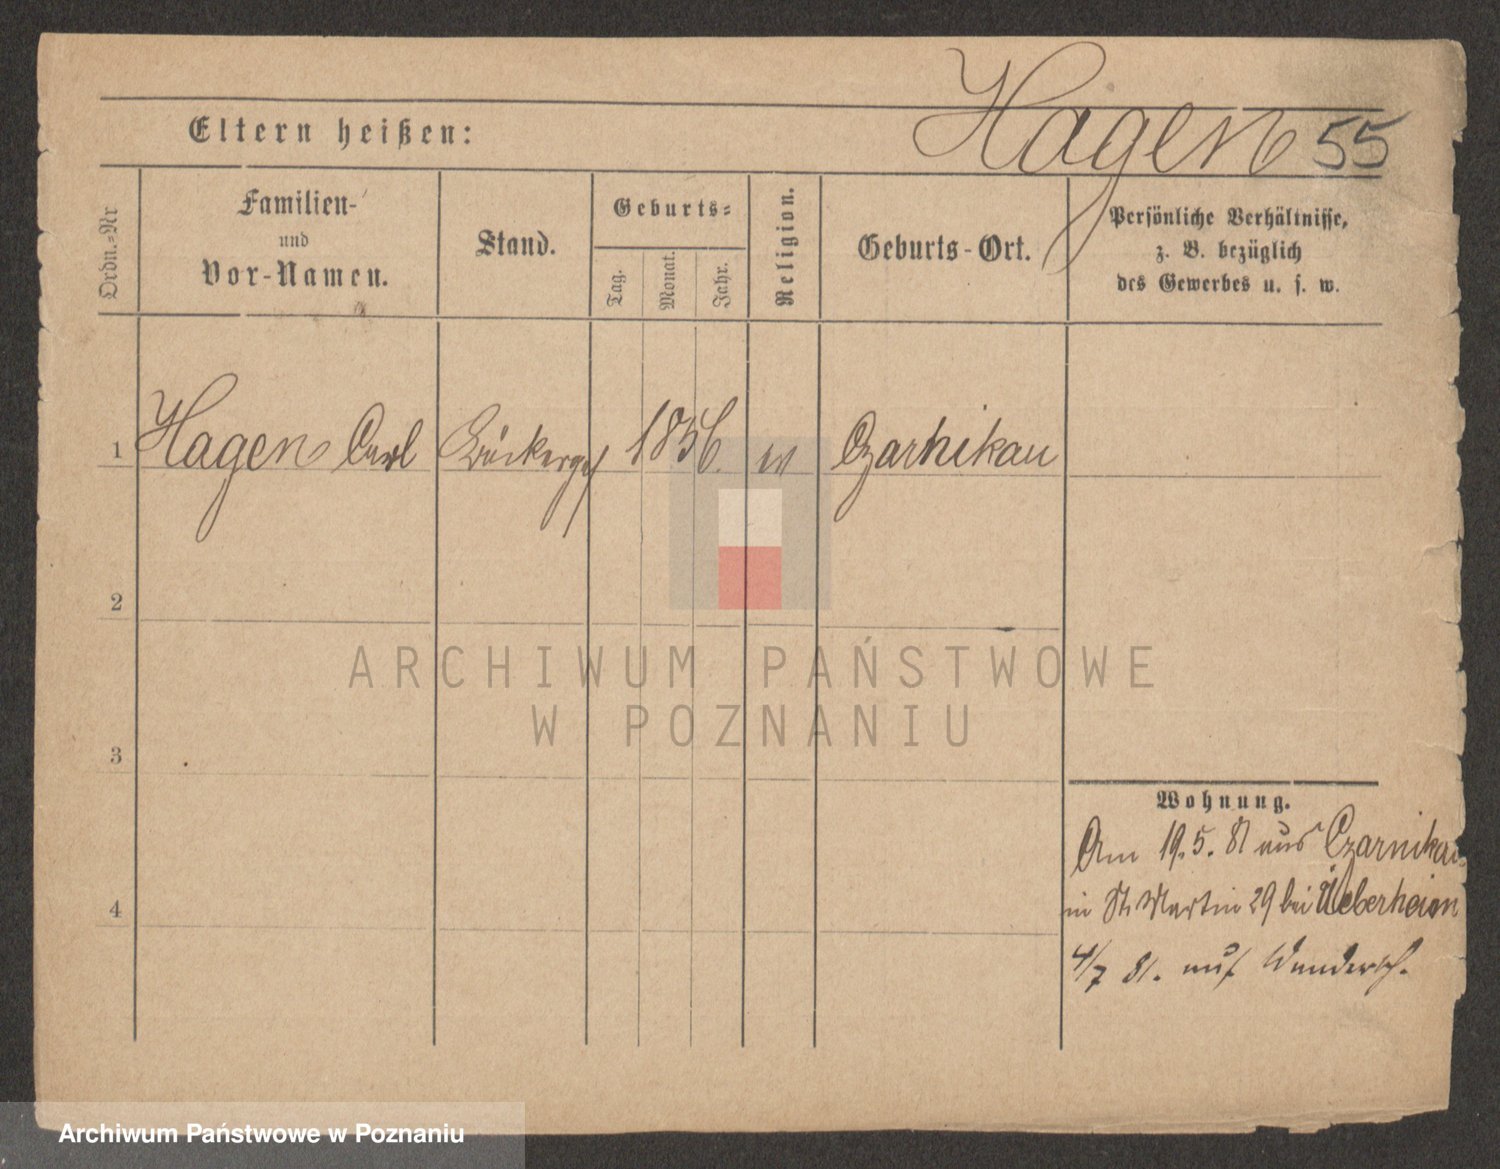 Hagen 55
Eltern heißen:
Ordn.=Nr
Familien-
und
Vor-Namen.
Stand.
Geburts=
Tag.
Monat.
Jahr.
Religion.
Geburts-Ort.
Persönliche Verhältnisse,
z. B. bezüglich
des Gewerbes u. s. w.
1 Hagen Carl Bäckerges 1856. ev Czarnikau
2
3
4
Wohnung.
Am 19.5.81 aus Czarnikau
in St. Martin 29 bei Ueberheim
4/7 81. auf Wandersch.
ARCHIWUM PAŃSTWOWE
W POZNANIU
Archiwum Państwowe w Poznaniu